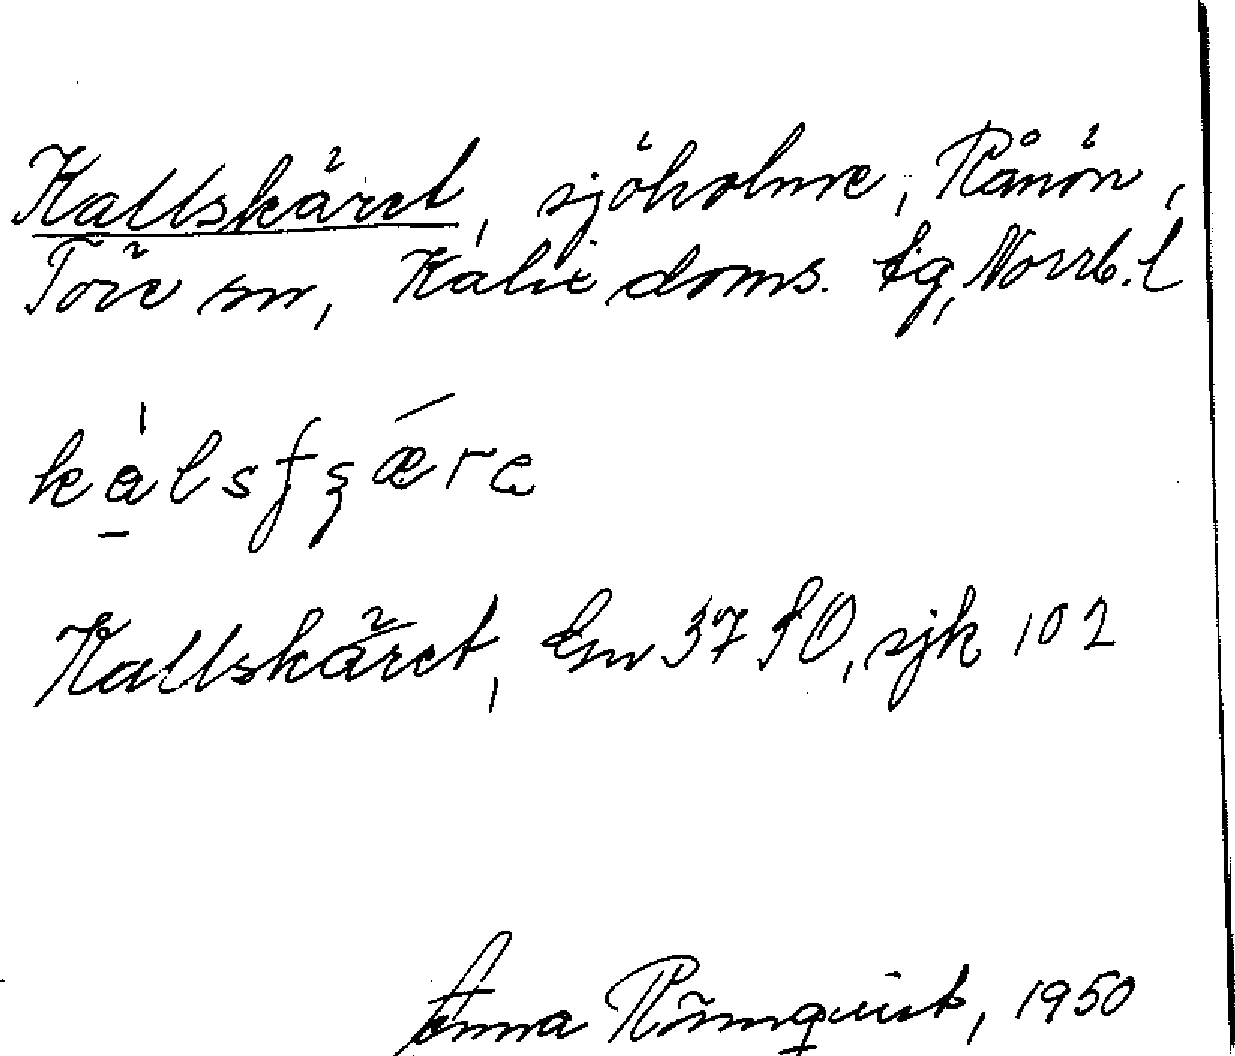 Kallskäret, sjöholme, Rånön,
Töre sn, Kalix doms. tg, Norrb. l
Kallskäret, Gsn 37 SO, sjk 102
Anna Rönnqvist, 1950